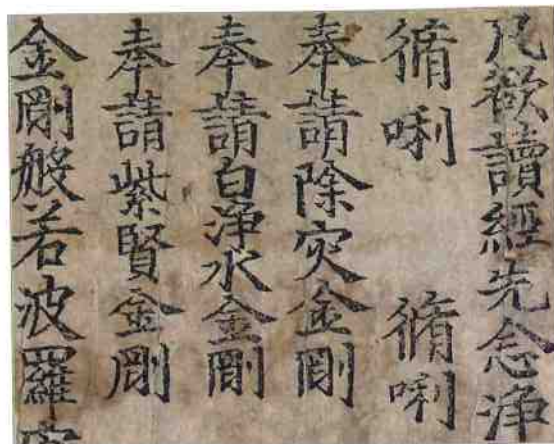 凡欲讀經先念淨
脩唎　脩唎
奉請除灾金剛
奉請白淨水金剛
奉請紫賢金剛
金剛般若波羅